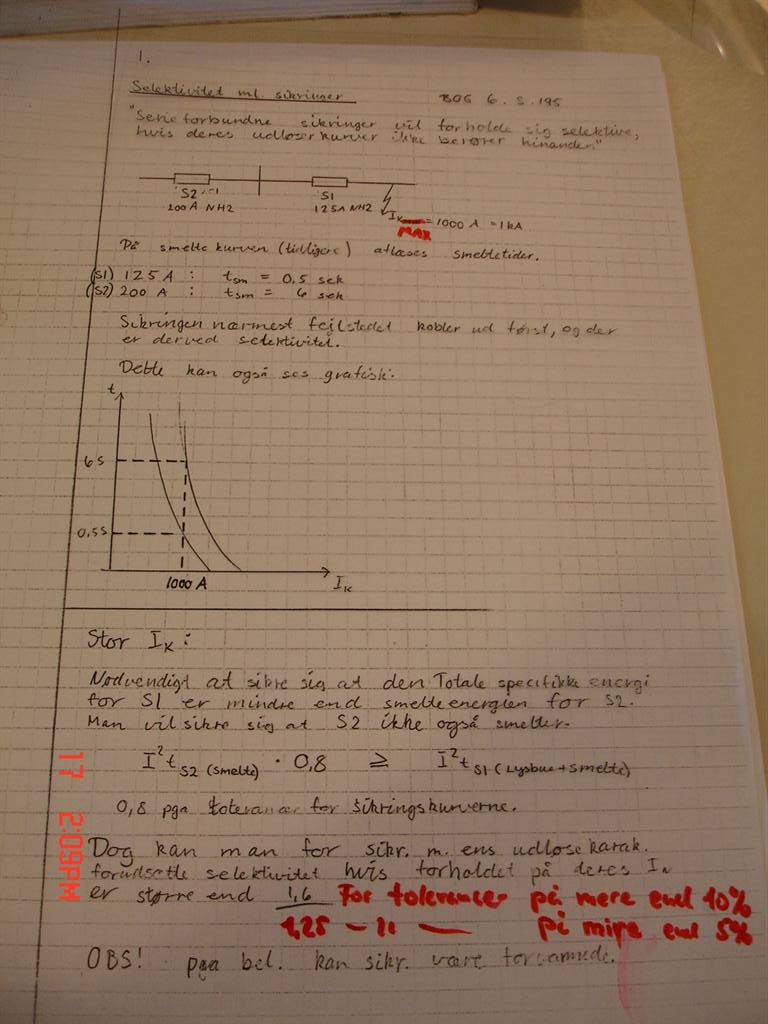 1.
Selektivitet ml. sikringer BOG 6. S. 195
"Serieforbundne sikringer vil forholde sig selektive,
hvis deres udløserkurver ikke berører hinanden"
S2 S1
200A NH2 125A NH2 IK = 1000 A = 1kA
MAX
På smeltekurven (tidligere) aflæses smeltetider.
(S1) 125 A : tsm = 0,5 sek
(S2) 200 A : tsm = 6 sek
Sikringen nærmest fejlstedet kobler ud først, og der
er derved selektivitet.
Dette kan også ses grafisk:
t
6s
0,5s
1000 A IK
Stor IK :
Nødvendigt at sikre sig at den Totale specifikke energi
for S1 er mindre end smelteenergien for S2.
Man vil sikre sig at S2 ikke også smelter.
I²t S2 (smelte) · 0,8 ≥ I²t S1 (Lysbue + smelte)
0,8 pga tolerancer for sikringskurverne.
Dog kan man for sikr. m. ens udløsekarak.
forudsætte selektivitet hvis forholdet på deres IN
er større end 1,6 For tolerancer på mere end 10%
1,25 — 11 — på mine end 5%
OBS! pga bel. kan sikr. være forvarmede.
17 2:09PM